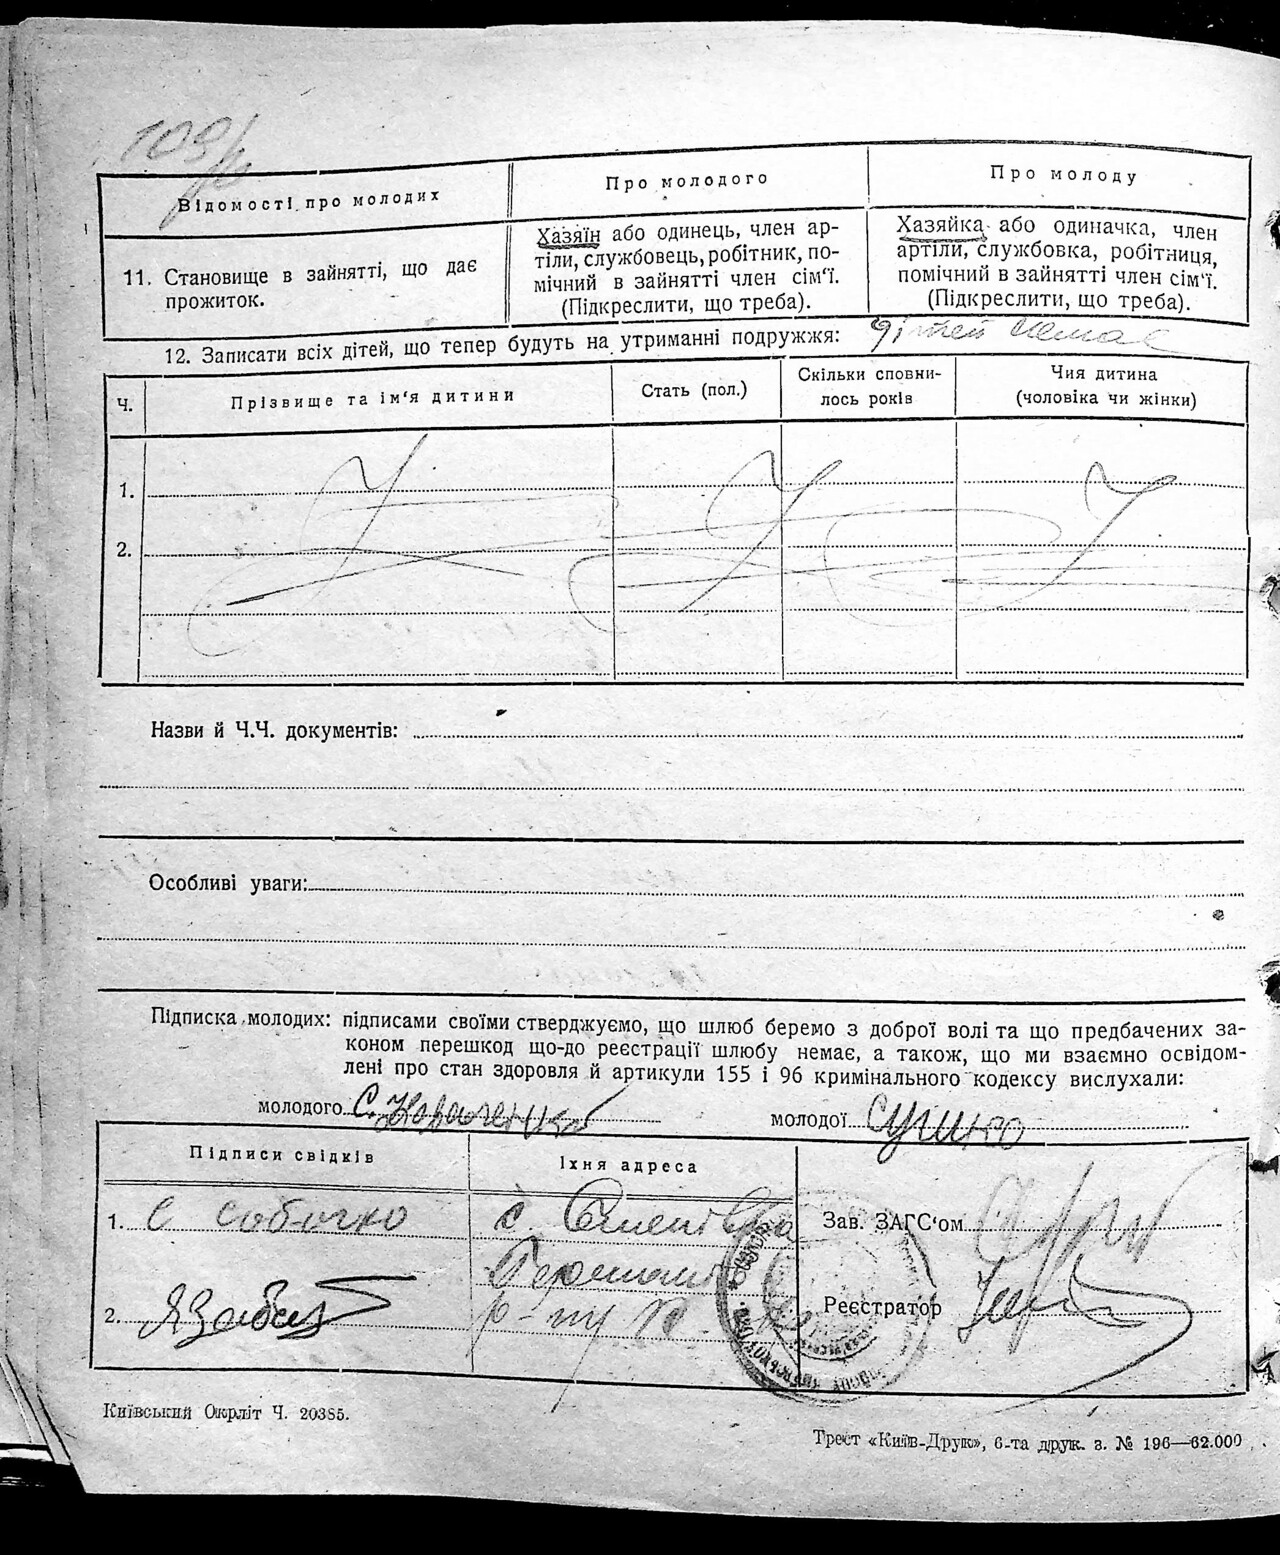 109
Відомості про молодих
Про молодого
Про молоду
11. Становище в зайнятті, що дає
прожиток.
Хазяїн або одинець, член ар-
тіли, службовець, робітник, по-
мічний в зайнятті член сім'ї.
(Підкреслити, що треба).
Хазяйка або одиначка, член
артіли, службовка, робітниця,
помічний в зайнятті член сім'ї.
(Підкреслити, що треба).
12. Записати всіх дітей, що тепер будуть на утриманні подружжя: дітей немає
Ч.
Прізвище та ім'я дитини
Стать (пол.)
Скільки сповни-
лось років
Чия дитина
(чоловіка чи жінки)
1.
2.
Назви й Ч.Ч. документів:
Особливі уваги:
Підписка молодих: підписами своїми стверджуємо, що шлюб беремо з доброї волі та що предбачених за-
коном перешкод що-до реєстрації шлюбу немає, а також, що ми взаємно освідом-
лені про стан здоровля й артикули 155 і 96 кримінального кодексу вислухали:
молодого С.
молодої
Підписи свідків
Їхня адреса
1. С Собочко
с.
Зав. ЗАГС'ом
2.
р-ну К.
Реєстратор
Київський Окрліт Ч. 20385.
Трест «Київ-Друк», 6-та друк. з. № 196—62.000